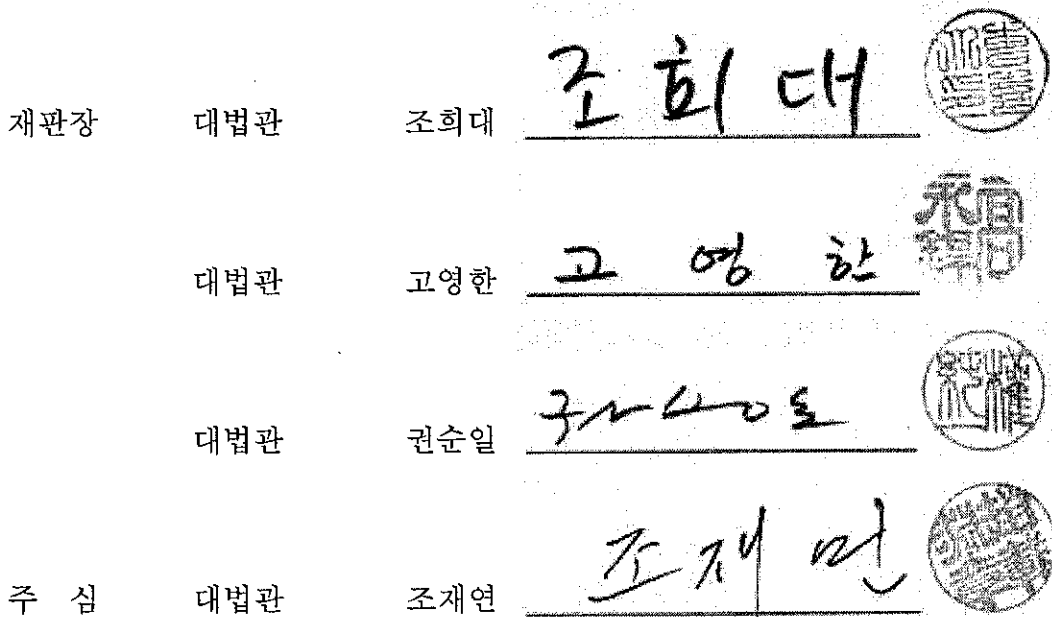 재판장 대법관 조희대 조희대
대법관 고영한 고영한
대법관 권순일
주 심 대법관 조재연 조재연